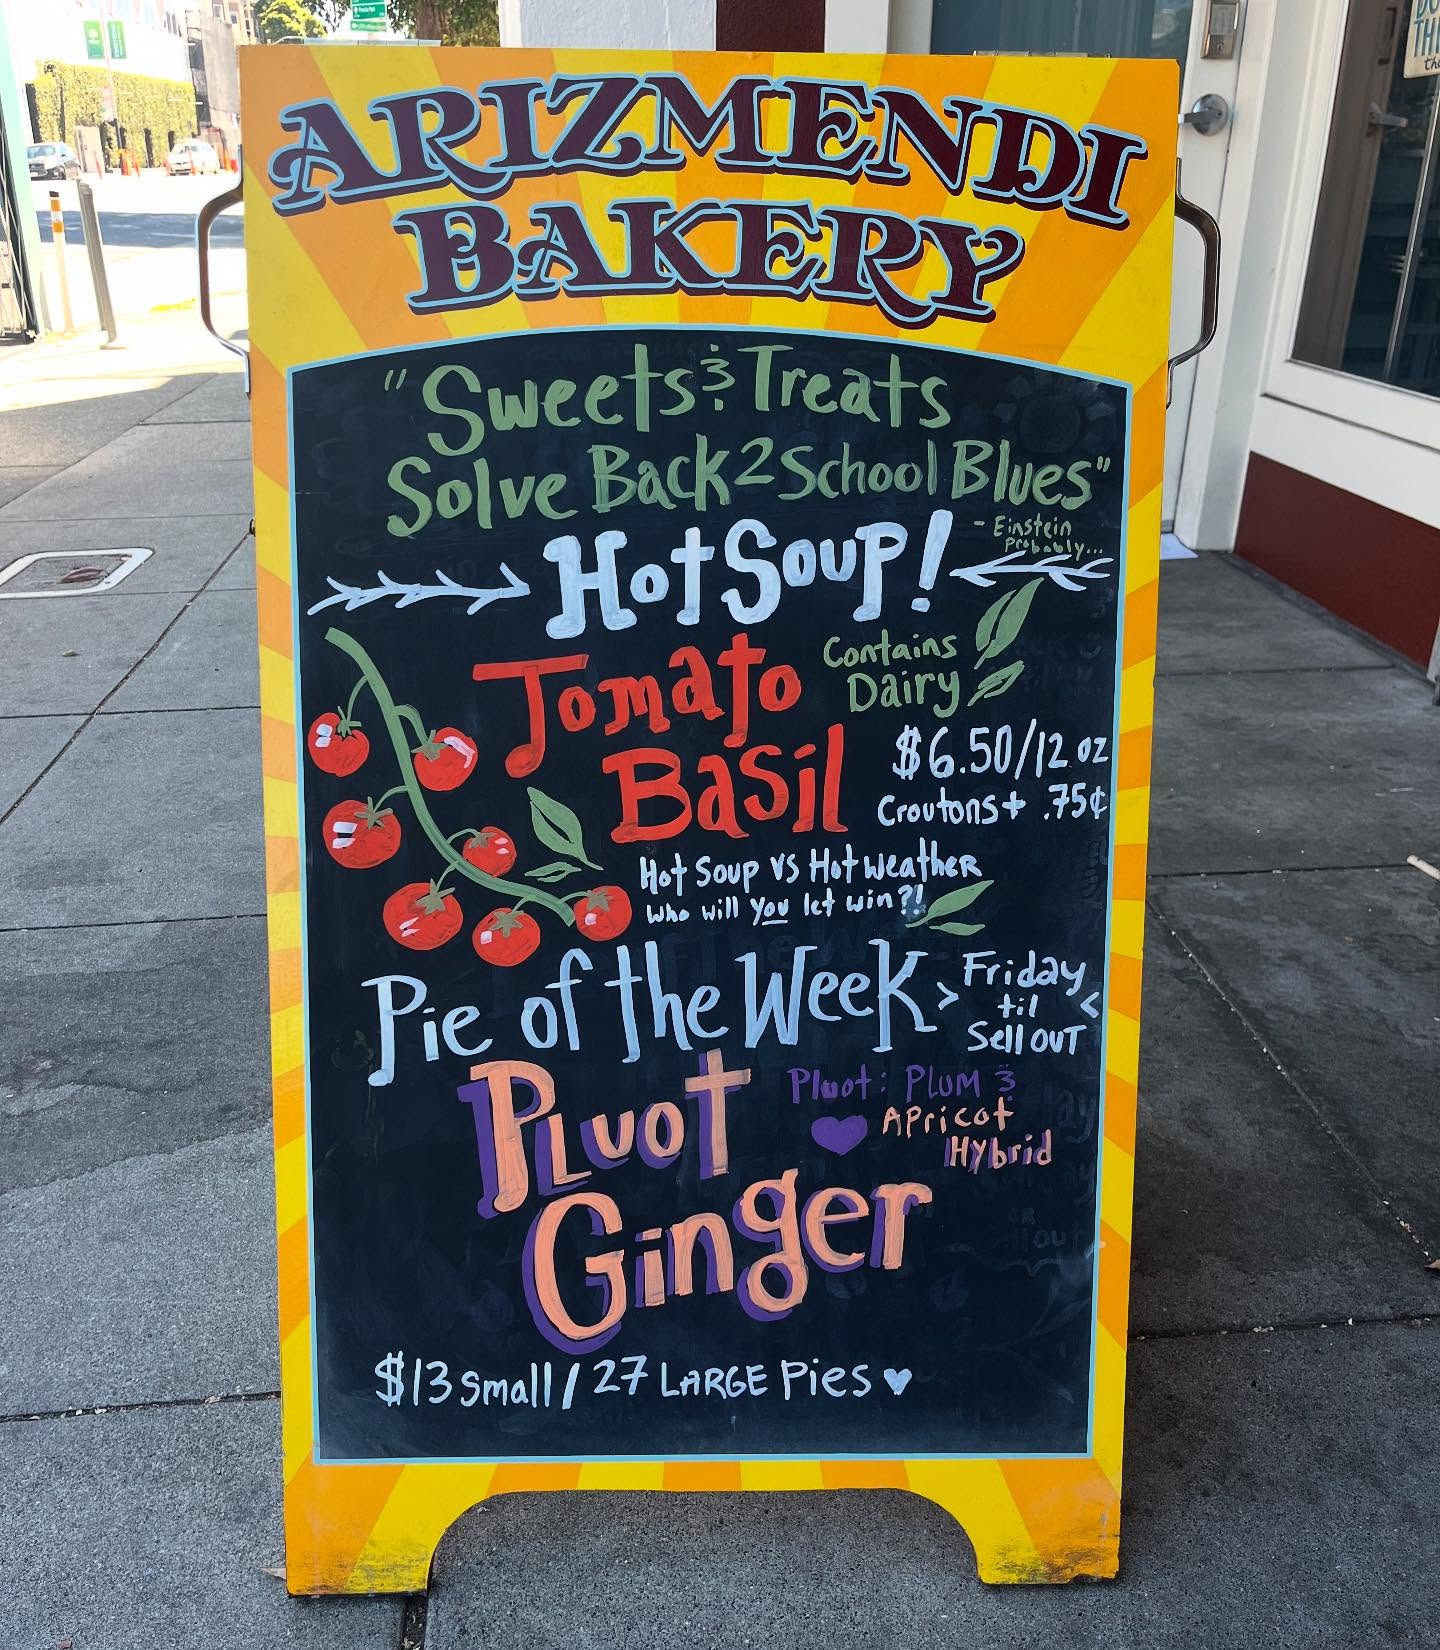 ARIZMENDI
BAKERY
"Sweets & Treats
Solve Back 2 School Blues"
- Einstein
Probably...
Hot Soup!
Tomato
Basil
Contains
Dairy
$6.50/12 oz
Croutons + .75¢
Hot Soup vs Hot Weather
who will you let win?!
Pie of the Week
> Friday
til <
Sell OUT
PLuot
Ginger
Pluot: PLUM &
Apricot
Hybrid
$13 small / 27 LARGE Pies ♥